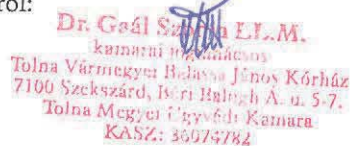 ról:
Dr. Gaál LL.M.
kamarai jogtanácsos
Tolna Vármegyei Balassa János Kórház
7100 Szekszárd, Béri Balogh Á. u. 5-7.
Tolna Megyei Ügyvédi Kamara
KASZ: 36074782